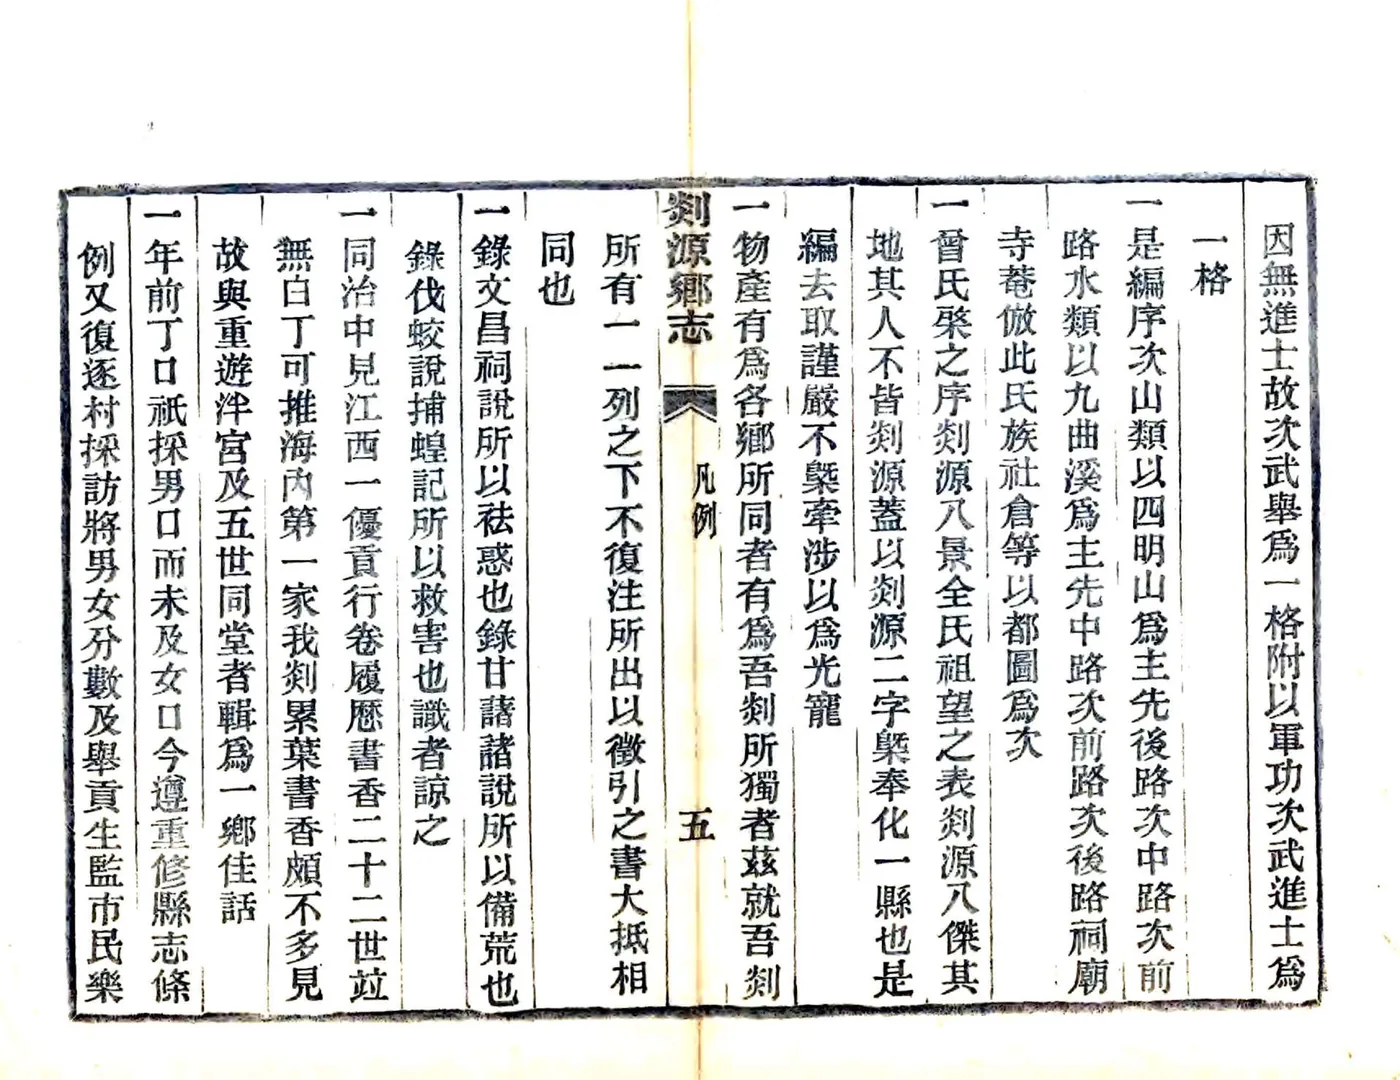 因無進士故次武舉爲一格附以軍功次武進士爲
一格
一是編序次山類以四明山爲主先後路次中路次前
路水類以九曲溪爲主先中路次前路次後路祠廟
寺菴倣此氏族社倉等以都圖爲次
一晉氏棨之序剡源八景全氏祖望之表剡源八傑其
地其人不皆剡源蓋以剡源二字槩奉化一縣也是
編去取謹嚴不槩牽涉以爲光寵
一物產有爲各鄉所同者有爲吾剡所獨者茲就吾剡
剡源鄉志
凡例
五
所有一一列之下不復注所出以徵引之書大抵相
同也
一錄文昌祠說所以祛惑也錄甘藷諸說所以備荒也
錄伐蛟說捕蝗記所以救害也識者諒之
一同治中見江西一優貢行卷履歷書香二十二世竝
無白丁可推海內第一家我剡累葉書香頗不多見
故與重遊泮宮及五世同堂者輯爲一鄉佳話
一年前丁口祇採男口而未及女口今遵重修縣志條
例又復逐村採訪將男女分數及舉貢生監市民樂